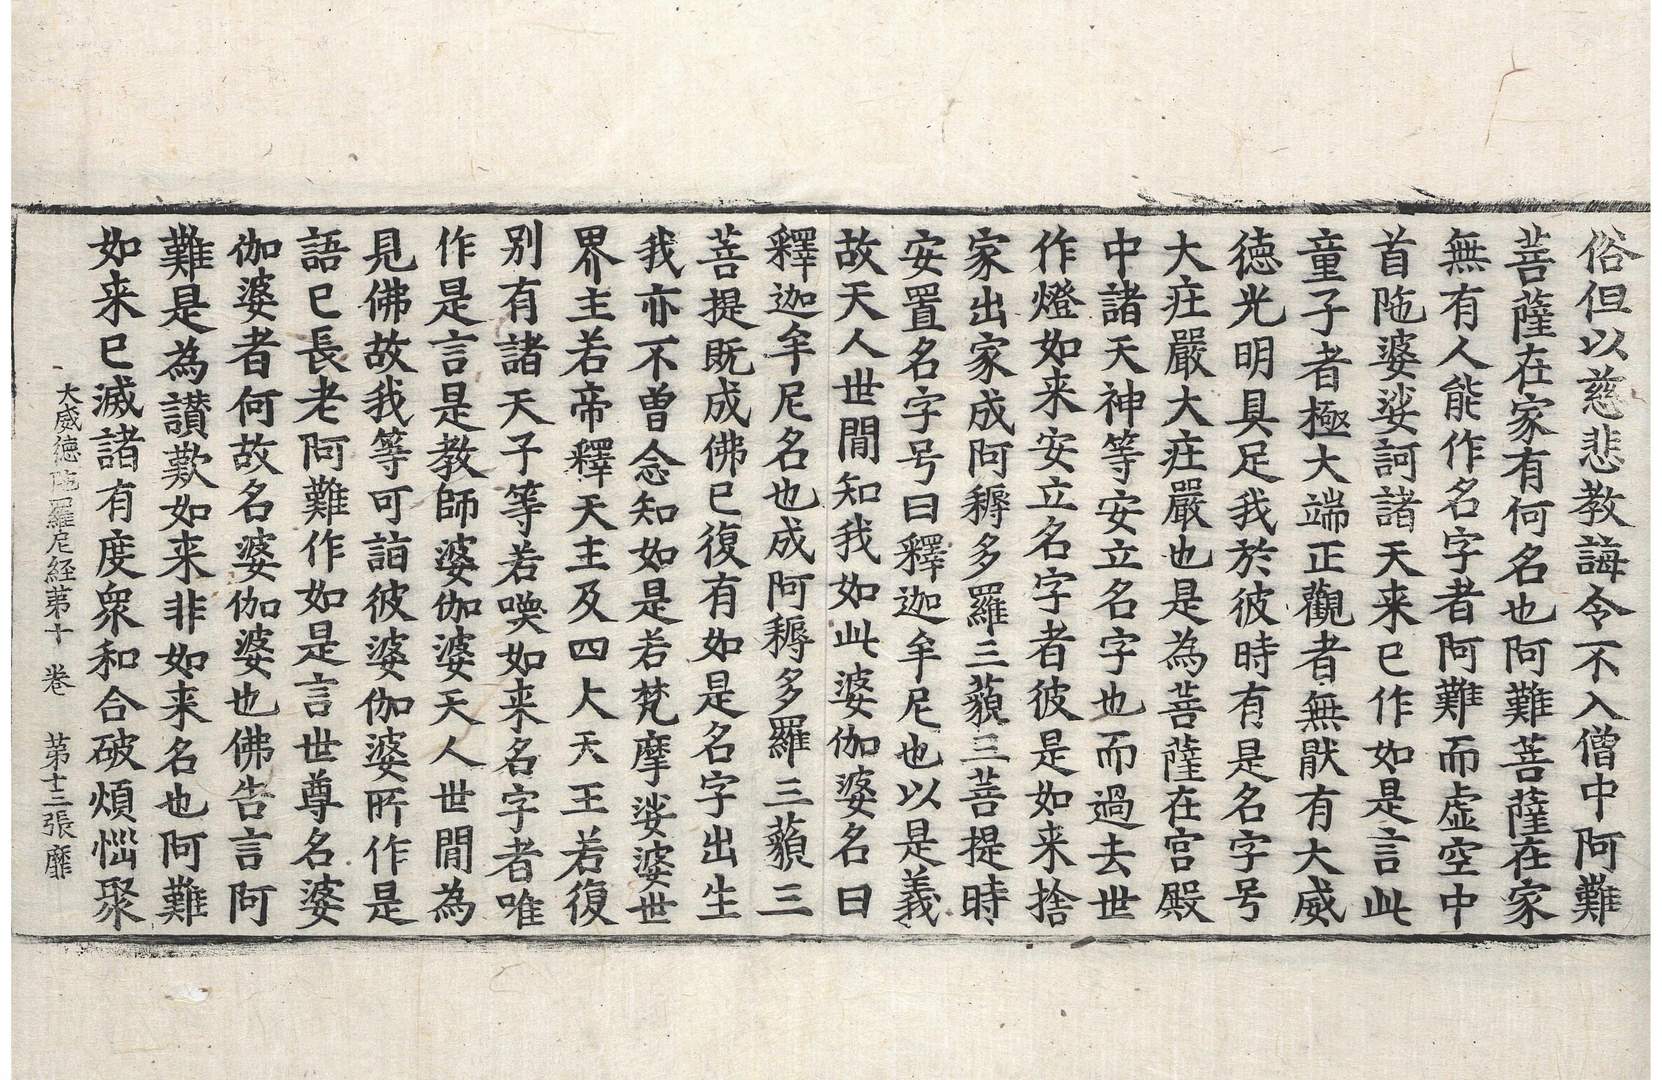 俗但以慈悲教誨令不入僧中阿難
菩薩在家有何名也阿難菩薩在家
無有人能作名字者阿難而虚空中
首陁婆娑訶諸天来已作如是言此
童子者極大端正觀者無猒有大威
徳光明具足我於彼時有是名字号
大庄嚴大庄嚴也是為菩薩在宫殿
中諸天神等安立名字也而過去世
作燈如来安立名字者彼是如来捨
家出家成阿耨多羅三藐三菩提時
安置名字号曰釋迦牟尼也以是義
故天人世間知我如此婆伽婆名曰
釋迦牟尼名也成阿耨多羅三藐三
菩提既成佛已復有如是名字出生
我亦不曾念知如是若梵摩娑婆世
界主若帝釋天主及四大天王若復
别有諸天子等若喚如来名字者唯
作是言是教師婆伽婆天人世間為
見佛故我等可詣彼婆伽婆所作是
語已長老阿難作如是言世尊名婆
伽婆者何故名婆伽婆也佛告言阿
難是為讃歎如来非如来名也阿難
如来已滅諸有度衆和合破煩惱聚
大威徳陁羅尼経苐十 巻 第十三張 靡